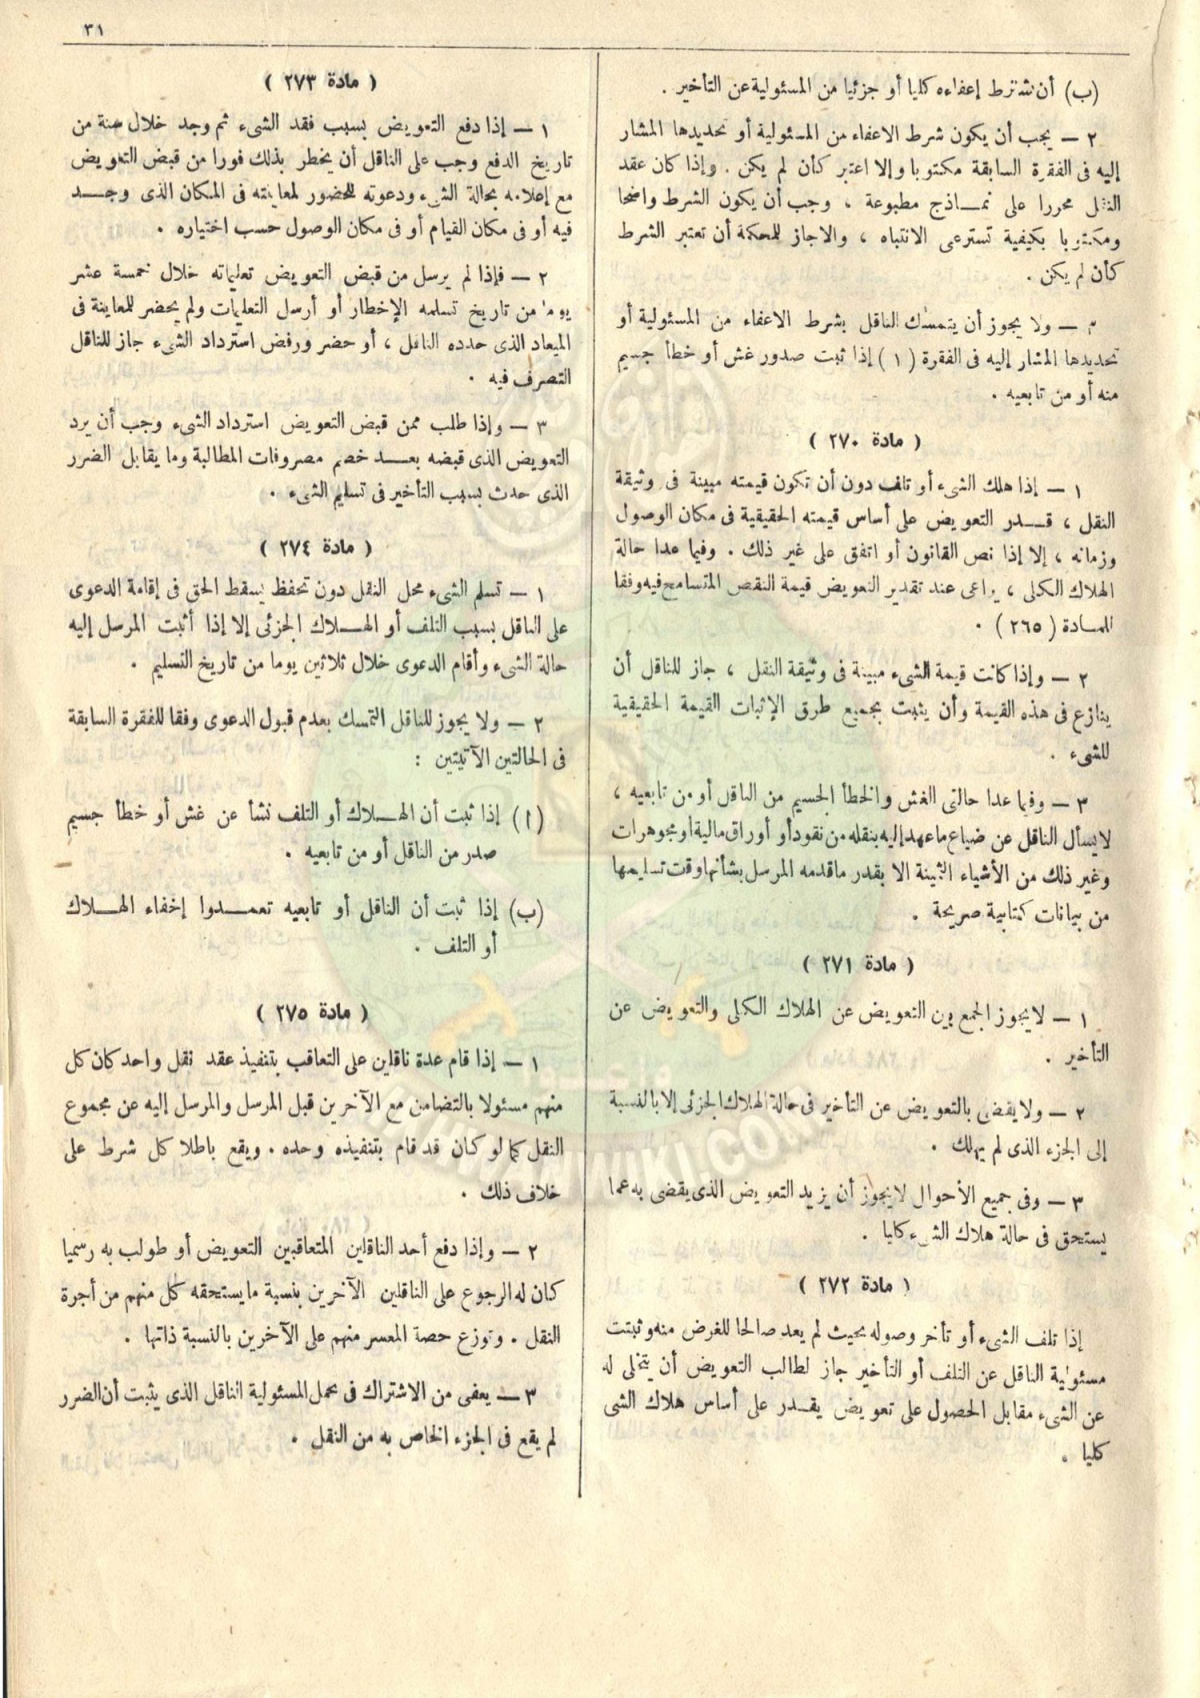 ٣١
(ب) أن يشترط إعفاءه كليا أو جزئيا من المسئولية عن التأخير .
٢ — يجب أن يكون شرط الاعفاء من المسئولية أو تحديدها المشار
إليه فى الفقرة السابقة مكتوبا وإلا اعتبر كأن لم يكن . وإذا كان عقد
النقل محررا على نمـاذج مطبوعة ، وجب أن يكون الشرط واضحا
ومكتوبا بكيفية تسترعى الانتباه ، والاجاز للمحكمة أن تعتبر الشرط
كأن لم يكن .
٣ — ولا يجوز أن يتمسك الناقل بشرط الاعفاء من المسئولية أو
تحديدها المشار إليه فى الفقرة ( ١ ) إذا ثبت صدور غش أو خطأ جسيم
منه أو من تابعيه .
( مادة ٢٧٠ )
١ — إذا هلك الشىء أو تلف دون أن تكون قيمته مبينة فى وثيقة
النقل ، قـدر التعويض على أساس قيمته الحقيقية فى مكان الوصول
وزمانه ، إلا إذا نص القانون أو اتفق على غير ذلك . وفيما عدا حالة
الهلاك الكلى ، يراعى عند تقدير التعويض قيمة النقص المتسامح فيه وفقا
للمادة ( ٢٦٥ ) .
٢ — وإذا كانت قيمة الشىء مبينة فى وثيقة النقل ، جاز للناقل أن
ينازع فى هذه القيمة وأن يثبت بجميع طرق الإثبات القيمة الحقيقية
للشىء .
٣ — وفيما عدا حالتى الغش والخطأ الجسيم من الناقل أو من تابعيه ،
لا يسأل الناقل عن ضياع ما عهد إليه بنقله من نقود أو أوراق مالية أو مجوهرات
وغير ذلك من الأشياء الثمينة الا بقدر ما قدمه المرسل بشأنها وقت تسليمها
من بيانات كتابية صريحة .
( مادة ٢٧١ )
١ — لا يجوز الجمع بين التعويض عن الهلاك الكلى والتعويض عن
التأخير .
٢ — ولا يقضى بالتعويض عن التأخير فى حالة الهلاك الجزئى إلا بالنسبة
إلى الجزء الذى لم يهلك .
٣ — وفى جميع الأحوال لا يجوز أن يزيد التعويض الذى يقضى به عما
يستحق فى حالة هلاك الشىء كليا .
( مادة ٢٧٢ )
إذا تلف الشىء أو تأخر وصوله بحيث لم يعد صالحا للغرض منه وثبتت
مسئولية الناقل عن التلف أو التأخير جاز لطالب التعويض أن يتخلى له
عن الشىء مقابل الحصول على تعويض يقـدر على أساس هلاك الشى
كليا .
( مادة ٢٧٣ )
١ — إذا دفع التعويض بسبب فقد الشىء ثم وجد خلال سنة من
تاريخ الدفع وجب على الناقل أن يخطر بذلك فورا من قبض التعويض
مع إعلامه بحالة الشىء ودعوته للحضور لمعاينته فى المكان الذى وجـد
فيه أو فى مكان القيام أو فى مكان الوصول حسب اختياره .
٢ — فإذا لم يرسل من قبض التعويض تعليماته خلال خمسة عشر
يوما من تاريخ تسلمه الإخطار أو أرسل التعليمات ولم يحضر للمعاينة فى
الميعاد الذى حدده الناقل ، أو حضر ورفض استرداد الشىء جاز للناقل
التصرف فيه .
٣ — وإذا طلب ممن قبض التعويض استرداد الشىء وجب أن يرد
التعويض الذى قبضه بعـد خصم مصروفات المطالبة وما يقابل الضرر
الذى حدث بسبب التأخير فى تسليم الشىء .
( مادة ٢٧٤ )
١ — تسلم الشىء محل النقل دون تحفظ يسقط الحق فى إقامة الدعوى
على الناقل بسبب التلف أو الهـلاك الجزئى إلا إذا أثبت المرسل إليه
حالة الشىء وأقام الدعوى خلال ثلاثين يوما من تاريخ التسليم .
٢ — ولا يجوز للناقل التمسك بعدم قبول الدعوى وفقا للفقرة السابقة
فى الحالتين الآتيتين :
(أ) إذا ثبت أن الهـلاك أو التلف نشأ عن غش أو خطأ جسيم
صدر من الناقل أو من تابعيه .
(ب) إذا ثبت أن الناقل أو تابعيه تعمـدوا إخفاء الهـلاك
أو التلف .
( مادة ٢٧٥ )
١ — إذا قام عدة ناقلين على التعاقب بتنفيذ عقد نقل واحد كان كل
منهم مسئولا بالتضامن مع الآخرين قبل المرسل والمرسل إليه عن مجموع
النقل كما لو كان قد قام بتنفيذه وحده . ويقع باطلا كل شرط على
خلاف ذلك .
٢ — وإذا دفع أحد الناقلين المتعاقبين التعويض أو طولب به رسميا
كان له الرجوع على الناقلين الآخرين بنسبة ما يستحقه كل منهم من أجرة
النقل . وتوزع حصة المعسر منهم على الآخرين بالنسبة ذاتها .
٣ — يعفى من الاشتراك فى تحمل المسئولية الناقل الذى يثبت أن الضرر
لم يقع فى الجزء الخاص به من النقل .